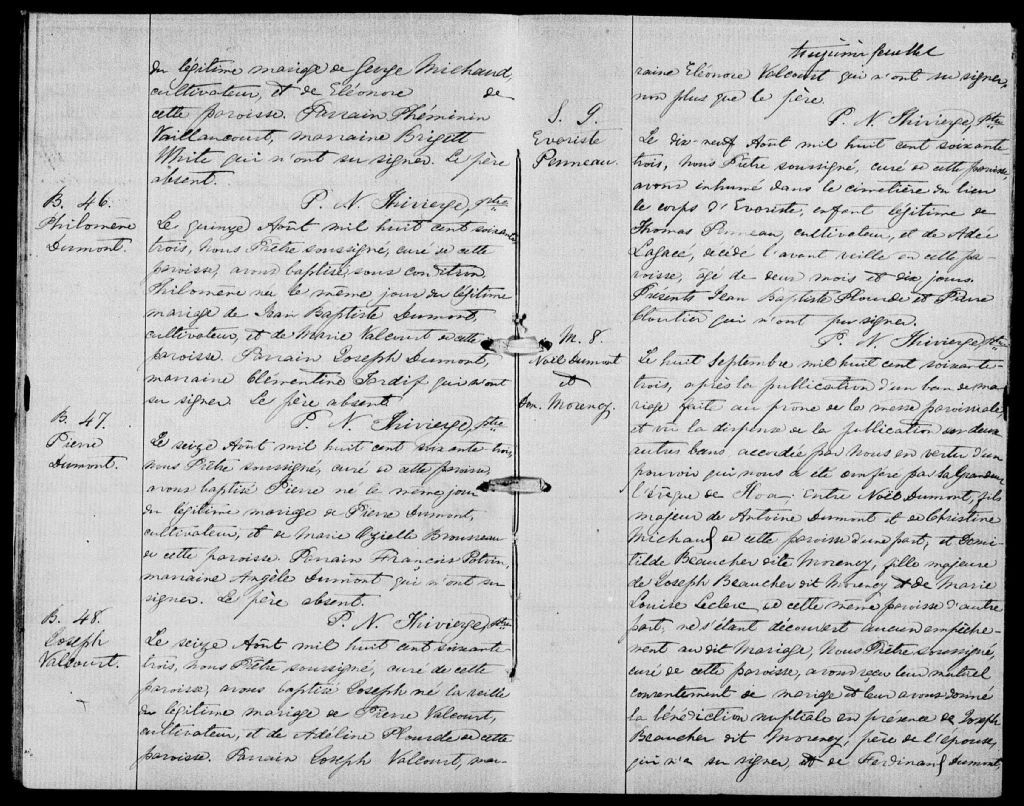 du légitime mariage de George Michaud,
cultivateur, et de Eléonore de
cette paroisse. Parrain Phéminin
Vaillancourt, marraine Brigett
White qui n'ont su signer. Le père
absent.
P. N. Thivierge, ptre
B. 46.
Philomène
Dumont.
Le quinze Août mil huit cent soixante
trois, nous Prêtre soussigné, curé de cette
paroisse, avons baptisé, sous condition
Philomène née le même jour du légitime
mariage de Jean Baptiste Dumont,
cultivateur, et de Marie Valcourt de cette
paroisse. Parrain Joseph Dumont,
marraine Clémentine Tardif qui n'ont
su signer. Le père absent.
P. N. Thivierge, ptre
B. 47.
Pierre
Dumont.
Le seize Août mil huit cent soixante-trois,
nous Prêtre soussigné, curé de cette paroisse
avons baptisé Pierre né le même jour
du légitime mariage de Pierre Dumont,
cultivateur, et de Marie Ozielle Brousseau
de cette paroisse. Parrain Francois Potvin,
marraine Angèle Dumont qui n'ont su
signer. Le père absent.
P. N. Thivierge, ptre
B. 48.
Joseph
Valcourt.
Le seize Août mil huit cent soixante-
trois, nous Prêtre soussigné, curé de cette
paroisse, avons baptisé Joseph né la veille
du légitime mariage de Pierre Valcourt,
cultivateur, et de Adéline Plourde de cette
paroisse. Parrain Joseph Valcourt, mar-
feuillet
raine Eléonore Valcourt qui n'ont su signer,
non plus que le père.
P. N. Thivierge, ptre
S. 9.
Evariste
Penneau.
Le dix-neuf Août mil huit cent soixante
trois, nous Prêtre soussigné, curé de cette paroisse,
avons inhumé dans le cimetière du lieu
le corps d'Evariste, enfant légitime de
Thomas Penneau, cultivateur, et de Adée
Lagacé, décédé l'avant veille en cette pa-
roisse, agé de deux mois et dix jours.
Présents Jean Baptiste Plourde et Pierre
Cloutier qui n'ont pu signer.
P. N. Thivierge, ptre
M. 8.
Noël Dumont
et
Dom. Morency.
Le huit Septembre mil huit cent soixante-
trois, après la publication d'un ban de ma-
riage faite au prone de la messe paroissiale
et vu la dispense de la publication des deux
autres bans, accordée par Nous en vertu d'un
pouvoir qui nous a été conféré par Sa Grandeur
l'évêque de Tloa, Entre Noël Dumont, fils
majeur de Antoine Dumont et de Christine
Michaud de cette paroisse d'une part, et Domi-
tilde Beaucher dite Morency, fille majeure
de Joseph Beaucher dit Morency et de Marie
Louise Leclerc de cette même paroisse d'autre
part, ne s'étant découvert aucun empêche-
ment au dit Mariage, Nous Prêtre soussigné,
curé de cette paroisse, avons reçu leur mutuel
consentement de mariage et leur avons donné
la bénédiction nuptiale en présence de Joseph
Beaucher dit Morency, père de l'épouse,
qui n'a su signer, et de Ferdinand Dumont,